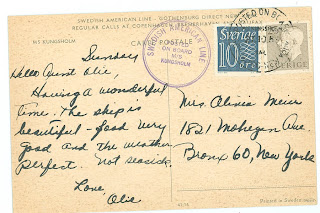 SWEDISH AMERICAN LINE - GOTHENBURG DIRECT NEW
REGULAR CALLS AT COPENHAGEN
M/S KUNGSHOLM
CARTE POSTALE
SWEDISH AMERICAN LINE
ON BOARD
M/S
KUNGSHOLM
POSTED ON BO
Sverige
10
öre
SVERIGE
Sunday
Hello Aunt Olie,
Having a wonderful
time. The ship is
beautiful - food very
good and the weather
perfect. Not seasick.
Love,
Olie
Mrs. Olivia Meier
1821 Mohegan Ave.
Bronx 60, New York
Printed in Sweden